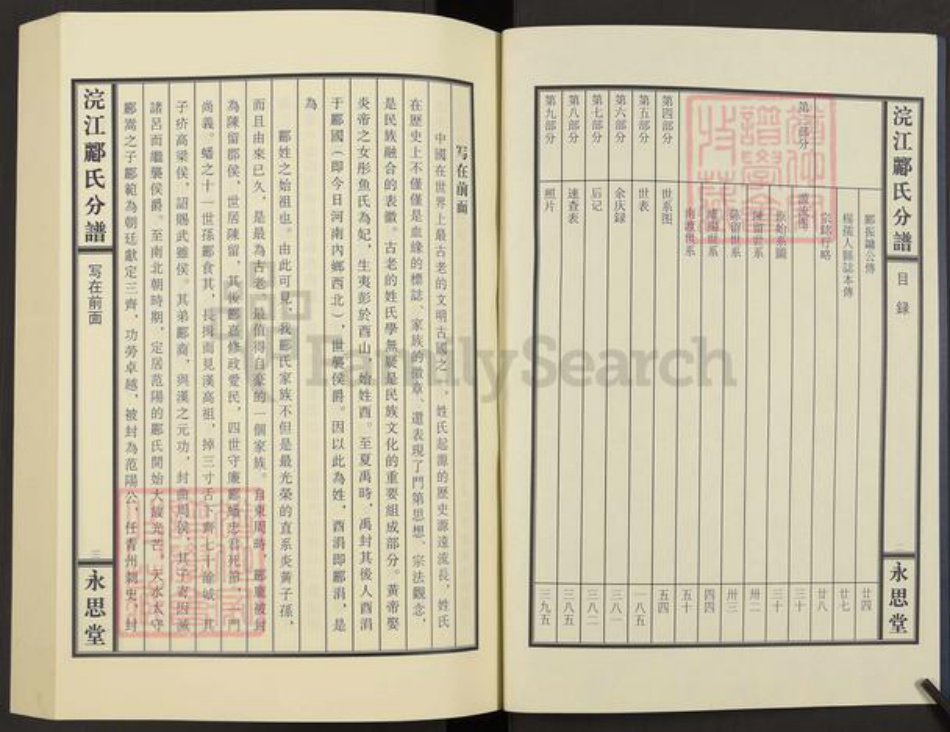 浣江酈氏分譜
目录
永思堂
酈振鏞公傳
廿四
楊孺人縣誌本傳
廿七
宗銘行略
廿八
第三部分
三十
原始系圖
三十
陳留世系
卅二
卅三
四四
南渡世系
五十
第四部分
世系图
五四
第五部分
世表
一八五
第六部分
余庆録
三八一
第七部分
后记
三八二
第八部分
速查表
三八五
第九部分
照片
三九五
写在前面
中國在世界上最古老的文明古國之一，姓氏起源的歷史源遠流長，姓氏
在歷史上不僅僅是血緣的標誌、家族的徽章，還表現了門第思想、宗法觀念，
是民族融合的表徵。古老的姓氏學無疑是民族文化的重要組成部分。黃帝娶
炎帝之女彤魚氏為妃，生夷彭於酉山，始姓酉。至夏禹時，禹封其後人酉涓
于酈國（即今日河南內鄉西北），世襲侯爵。因以此為姓，酉涓即酈涓，是
為
酈姓之始祖也。由此可見，我酈氏家族不但是最光榮的直系炎黃子孫，
而且由來已久，是最為古老、最值得自豪的一個家族。自東周時，酈魔被封
為陳留郡侯，世居陳留，其後酈嘉修政愛民，四世守廉酈蟠忠君死節，一門
尚義。蟠之十一世孫酈食其，長揖而見漢高祖，掉三寸舌下齊七十餘城，其
子疥高梁侯，詔賜武遂侯。其弟酈商，與漢之元功，封曲周侯，其子寄因滅
諸呂而繼襲侯爵。至南北朝時期，定居范陽的酈氏開始大放光芒。天水太守
酈嵩之子酈範為朝廷獻定三齊，功勞卓越，被封為范陽公，任青州刺史，封
浣江酈氏分譜
写在前面
三
永思堂
FamilySearch